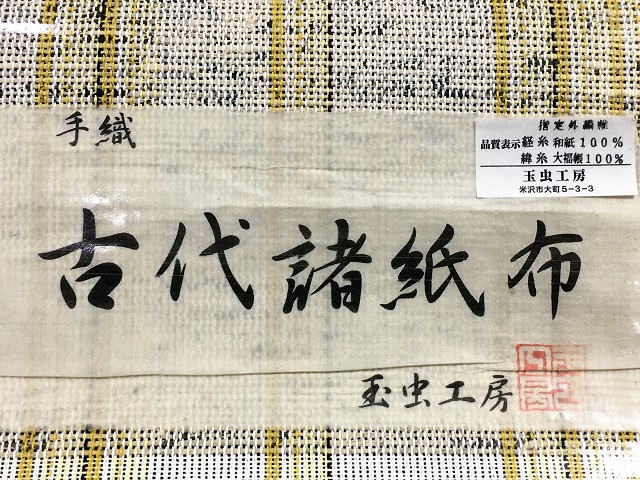 手織
古代諸紙布
玉虫工房
指定外繊維
品質表示 経糸 和紙100%
緯糸 大福帳100%
玉虫工房
米沢市大町5-3-3